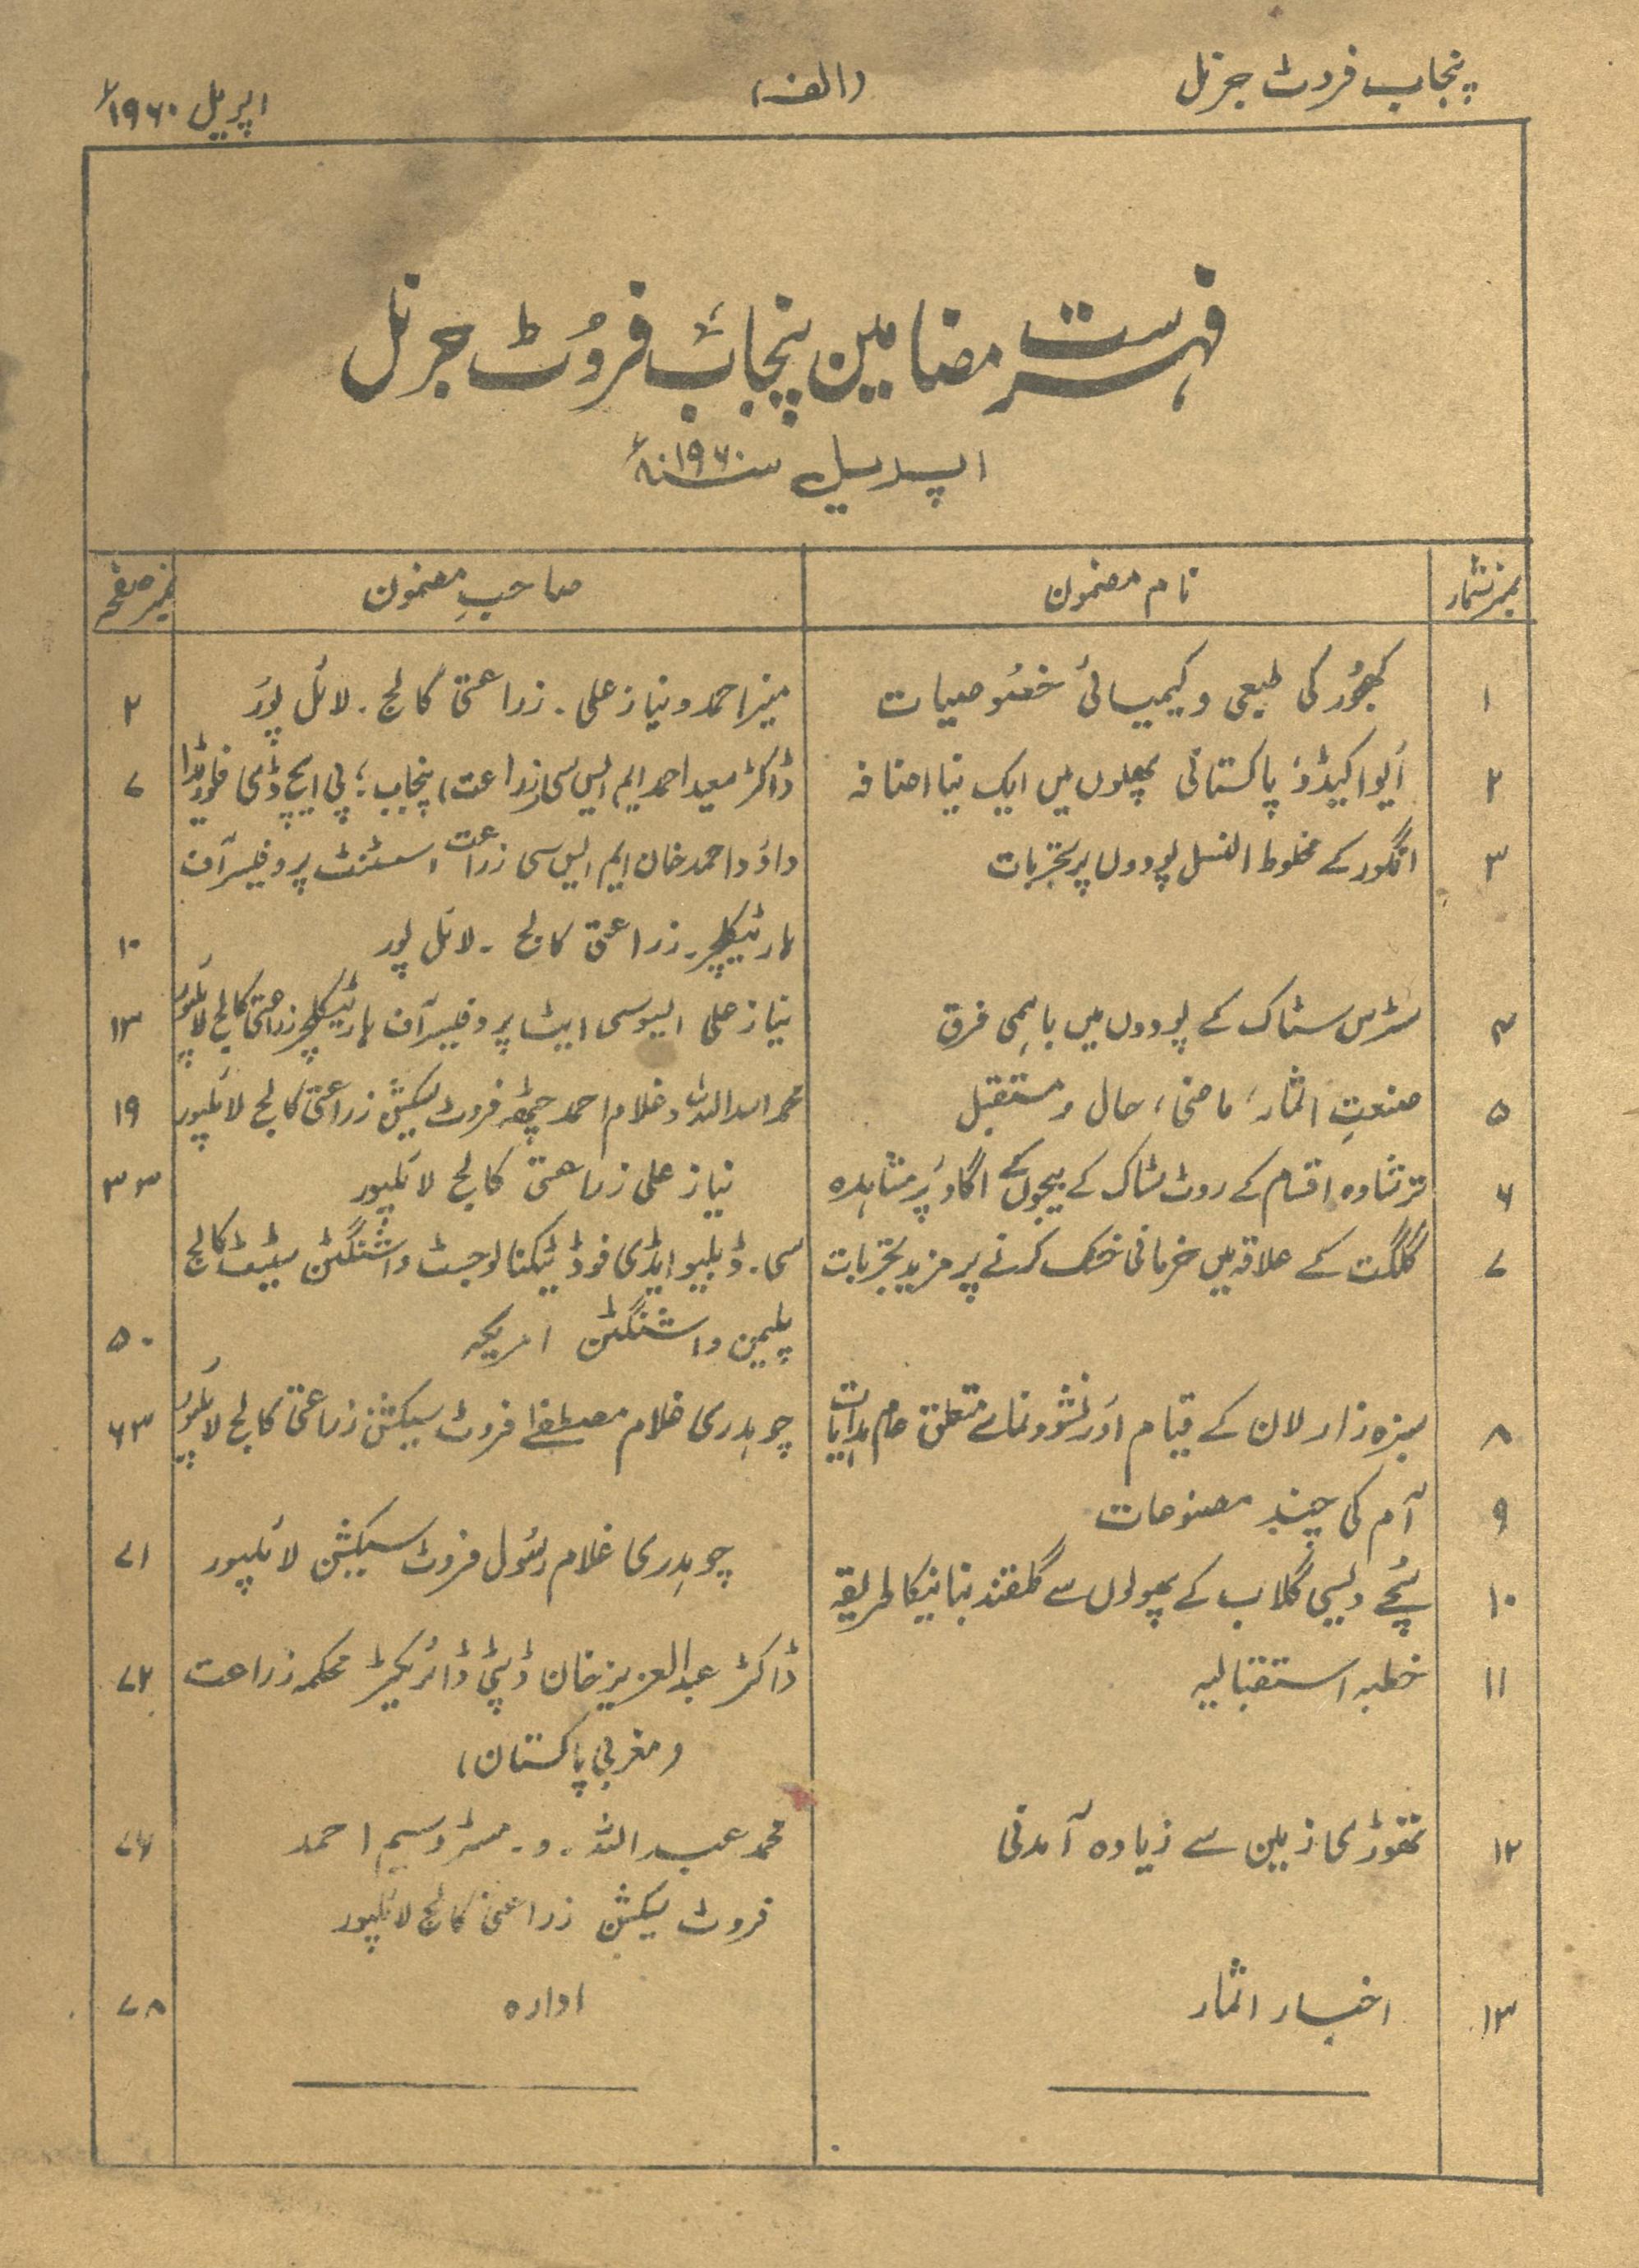 پنجاب فروٹ جرنل
(الف)
اپریل ۱۹۶۰ء
فہرست مضامین پنجاب فروٹ جرنل
اپریل سنہ ۱۹۶۰ء
نمبر شمار نام مضمون صاحبِ مضمون نمبر صفحہ
۱ کھجور کی طبعی و کیمیائی خصوصیات منیر احمد و نیاز علی۔ زراعتی کالج۔ لائل پور ۲
۲ ایواکیڈو پاکستانی پھلوں میں ایک نیا اضافہ ڈاکٹر سعید احمد ایم ایس سی (زراعت) پنجاب؛ پی ایچ ڈی فلوریڈا ۷
۳ انگور کے مخلوط النسل پودوں پر تجربات داؤد احمد خان ایم ایس سی زراعت اسسٹنٹ پروفیسر آف
ہارٹیکلچر۔ زراعتی کالج۔ لائل پور ۱۰
۴ سٹرس سٹاک کے پودوں میں باہمی فرق نیاز علی ایسوسی ایٹ پروفیسر آف ہارٹیکلچر زراعتی کالج لائلپور ۱۳
۵ صنعتِ اثمار، ماضی، حال و مستقبل محمد اسد اللہ و غلام احمد چٹھہ فروٹ سیکشن زراعتی کالج لائلپور ۱۹
۶ ترشاوہ اقسام کے روٹ سٹاک کے بیجوں کے اگاؤ پر مشاہدہ نیاز علی زراعتی کالج لائلپور ۳۳
۷ گلگت کے علاقہ میں خرمانی خشک کرنے پر مزید تجربات سی۔ ڈبلیو ایڈی فوڈ ٹیکنالوجسٹ واشنگٹن سٹیٹ کالج
پلیمن واشنگٹن امریکہ ۵۰
۸ سبزہ زار لان کے قیام اور نشوونما سے متعلق عام ہدایات چوہدری غلام مصطفےٰ فروٹ سیکشن زراعتی کالج لائلپور ۶۳
۹ آم کی چند مصنوعات
چوہدری غلام رسول فروٹ سیکشن لائلپور ۷۱
۱۰ سچے دیسی گلاب کے پھولوں سے گلقند بنانیکا طریقہ
۱۱ خطبہ استقبالیہ ڈاکٹر عبدالعزیز خان ڈپٹی ڈائریکٹر محکمہ زراعت ۷۲
(مغربی پاکستان)
۱۲ تھوڑی زمین سے زیادہ آمدنی محمد عبداللہ۔ و۔ مسٹر وسیم احمد ۷۶
فروٹ سیکشن زراعتی کالج لائلپور
۱۳ اخبار اثمار ادارہ ۷۸